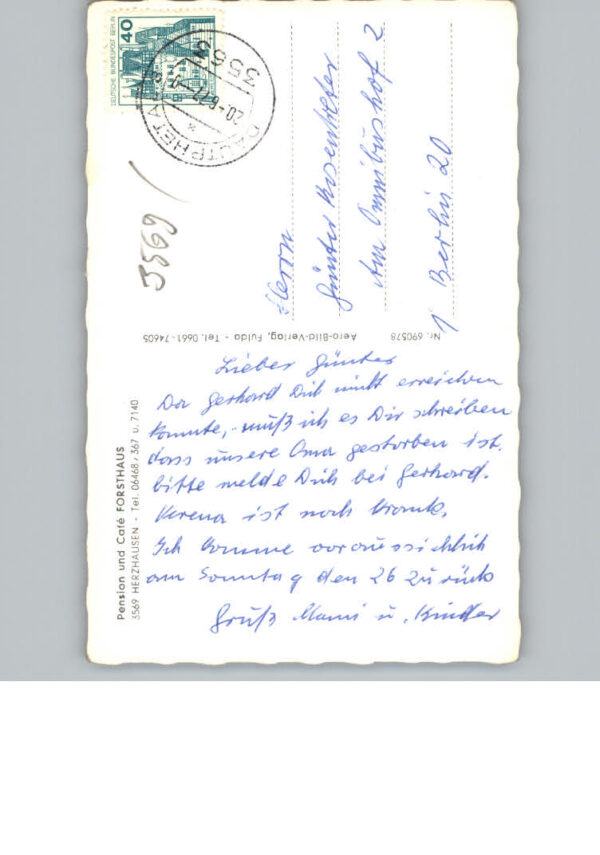 DEUTSCHE BUNDESPOST BERLIN
40
3563
DAUTPHETAL
20.-6.77
3569
Herrn
Günter Rosentreter
Am Omnibushof 2
1 Berlin 20
Nr. 690578
Aero-Bild-Verlag, Fulda - Tel. 0661-74605
Pension und Café FORSTHAUS
3569 HERZHAUSEN - Tel. 06468 / 367 u. 7140
Lieber Günter
Da Gerhard Dich nicht erreichen
konnte, muß ich es Dir schreiben
dass unsere Oma gestorben ist.
bitte melde Dich bei Gerhard.
Verena ist noch krank.
Ich komme voraussichtlich
am Sonntag den 26 zurück
Gruß Mami u. Kinder